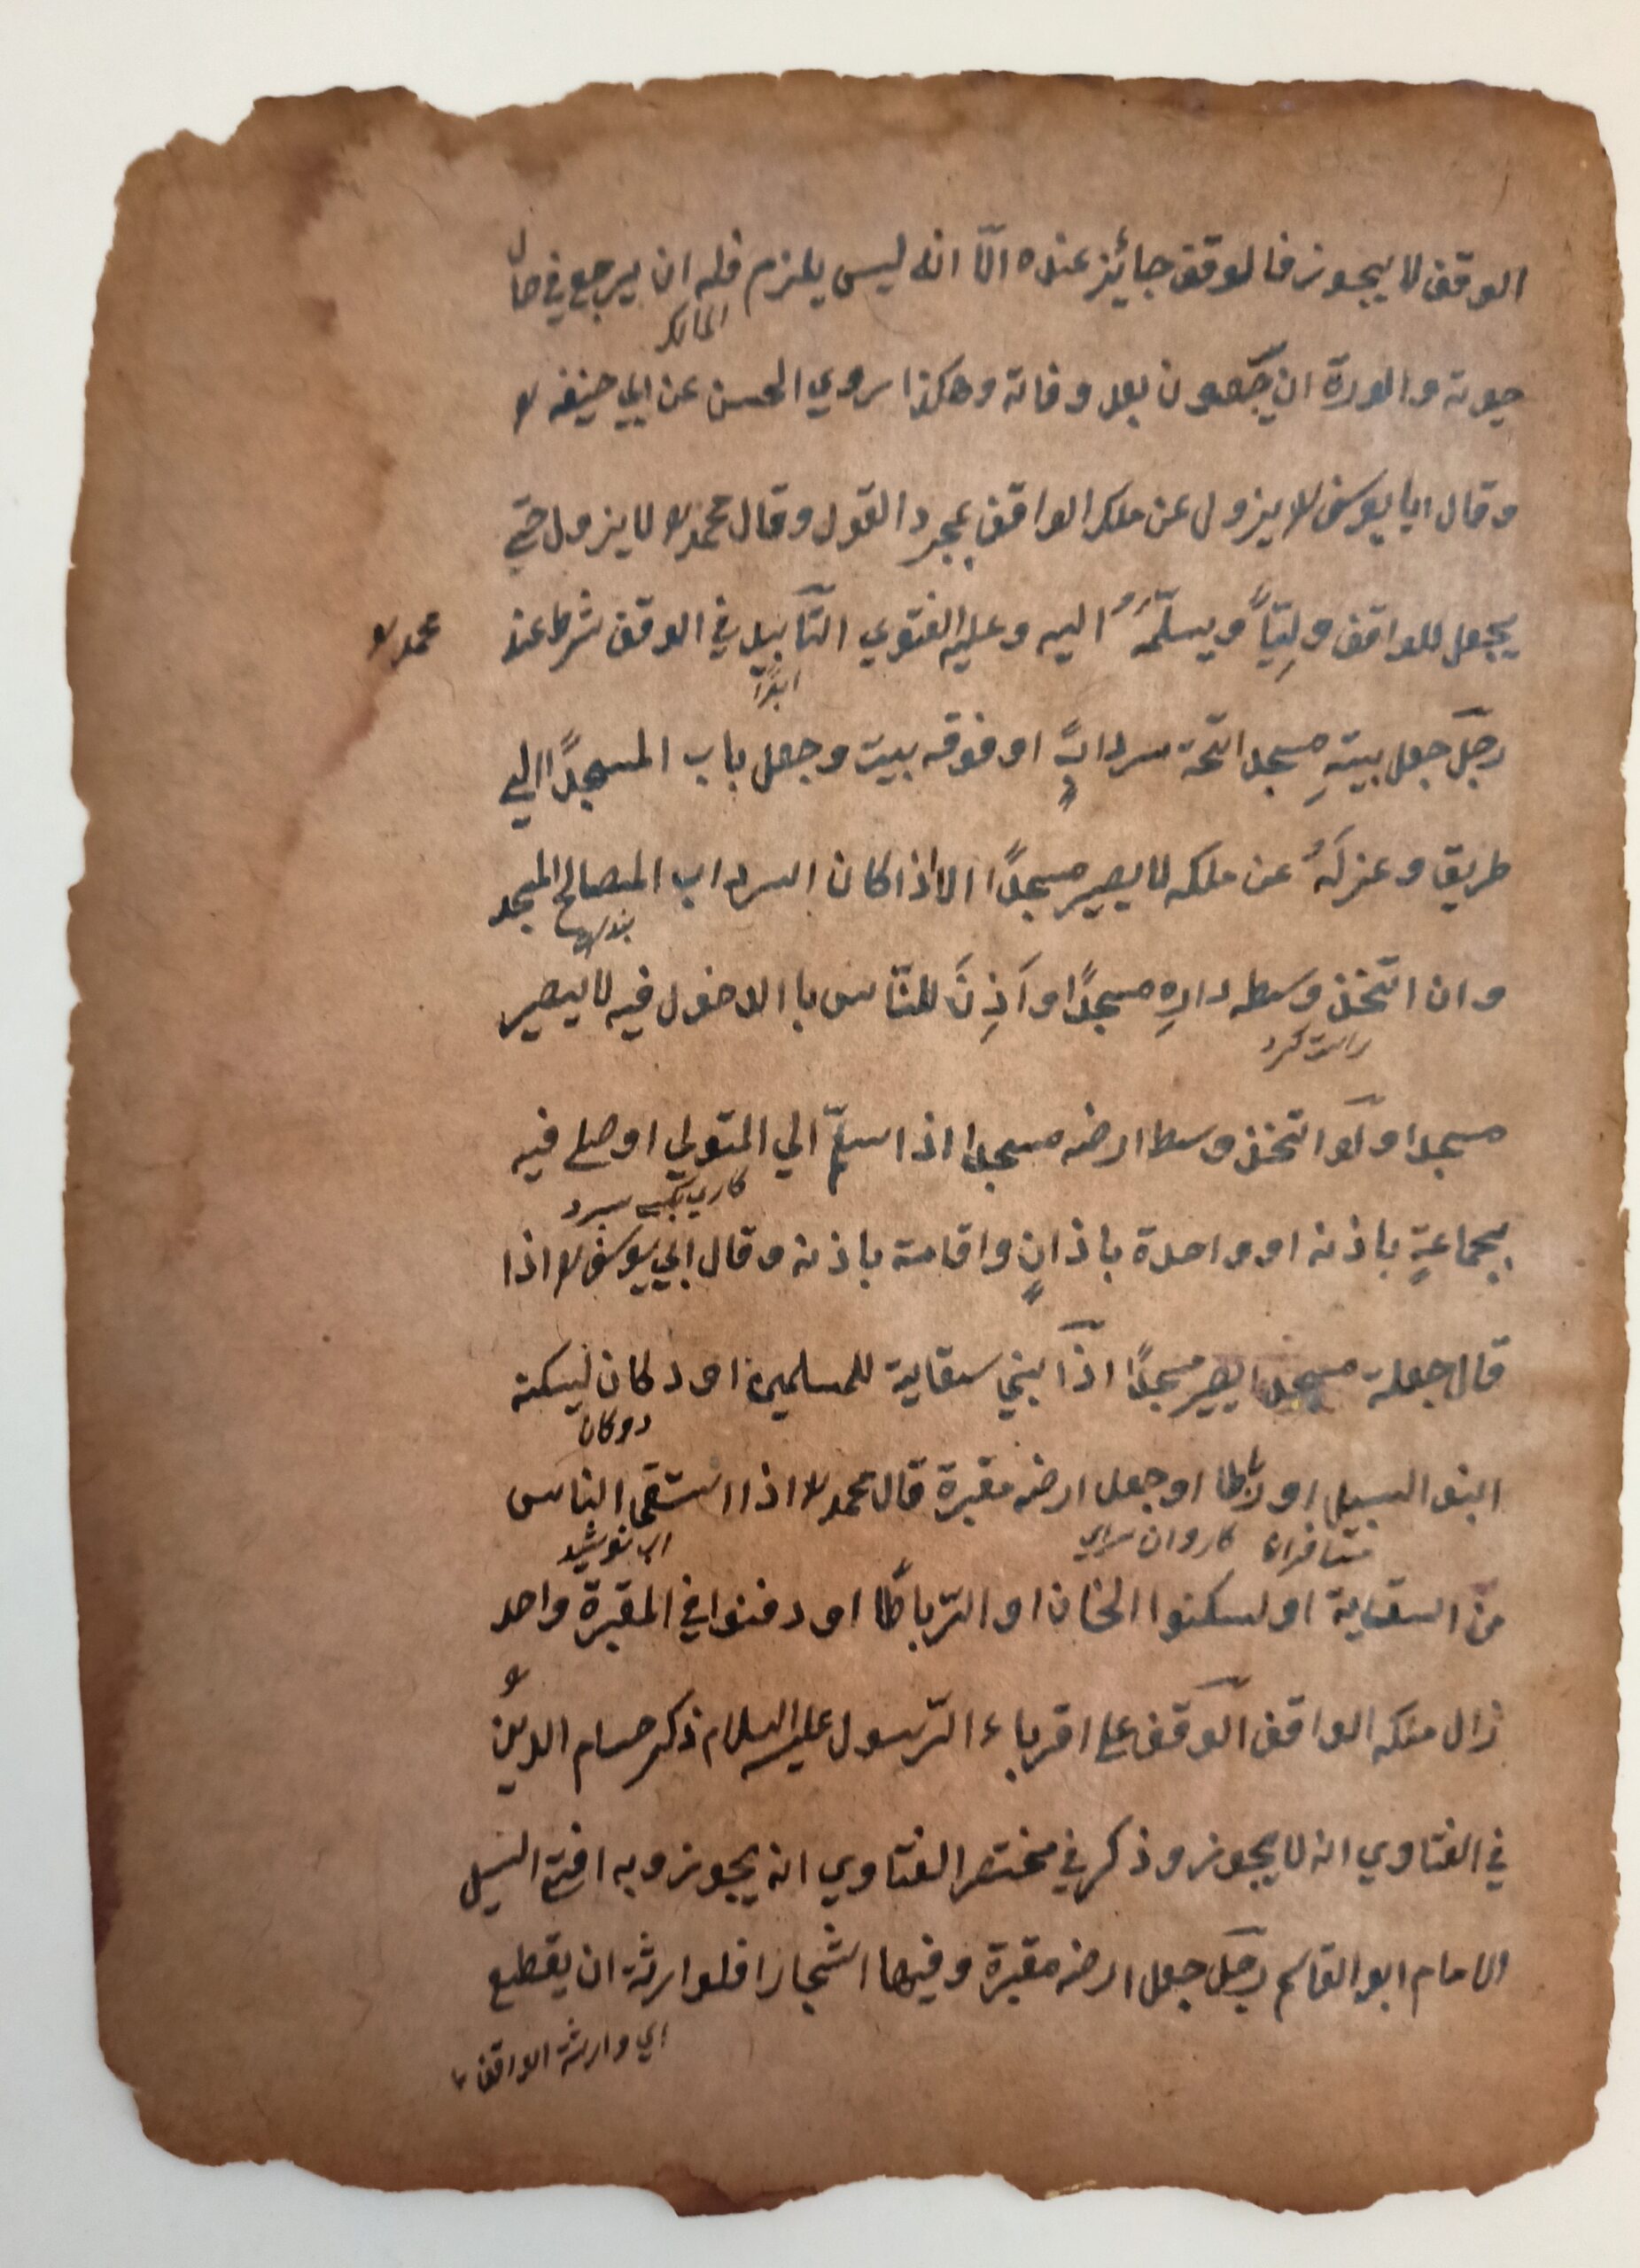 الوقف لا يجوز فالوقف جائز عنده الّا انه ليس يلزم فله ان يرجع في حال
المالك
حيوته والورثة ان يرجعون بعد وفاته وهكذا روي الحسن عن ابي حنيفه
وقال ابا يوسف يزول عن ملك الواقف بمجرد القول وقال محمد لا يزول حتي
يجعل للواقف وليّاً ويسلّمهُ اليه وعليه الفتوي التّأبيد في الوقف شرط عند محمد
ابدًا
رجل جعل بيتهِ مسجدا تحته سردابٍ او فوقه بيت وجعل باب المسجدًا الي
طريق وعزلَهُ عن ملكه لا يصير مسجدًا الا اذا كان السرداب المصالح المسجد
وان اتّخذ وسط دارهِ مسجدًا واَذِنَ للنّاس باالدخول فيه لا يصير
راست كرد
مسجدا ولو اتخذ وسط ارضه مسجدا اذا سلّم الي المتولي او صلي فيه
بجماعةٍ باذنه او واحدة باذانٍ واقامة باذنه وقال ابي يوسف اذا
قال جعلته مسجدا يصير مسجدًا اذا بني سقاية للمسلمين او دكان ليسكنه
دوكان
ابنو السبيل او رباطا او جعل ارضه مقبرة قال محمد اذا استقي الناس
مسافران كاروان سراي
اب نوشيد
من السقاية او سكنوا الخان او الرّباطًا او دفنوا في المقبرة واحد
زال ملكه الواقف الوقف علي اقرباء الرّسول عليه السلام ذكر حسام الدين
في الفتاوي انه لا يجوز وذكر في مختصر الفتاوي انه يجوز وبه افتي السيل
والامام ابو القاسم رجل جعل ارضه مقبرة وفيها اشجارا فلوارثه ان يقطع
اي وارثه الواقف